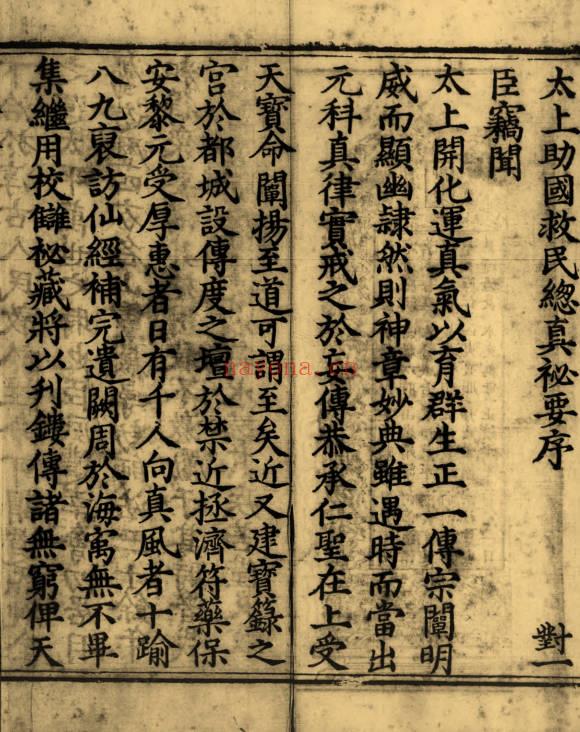 太上助國救民總真祕要序
對一
臣竊聞
太上開化運真氣以育群生正一傳宗闡明
威而顯幽隷然則神章妙典雖遇時而當出
元科真律實戒之於妄傳恭承仁聖在上受
天寶命闡揚至道可謂至矣近又建寶籙之
宫於都城設傳度之壇於禁近拯濟符藥保
安黎元受厚惠者日有千人向真風者十踰
八九裒訪仙經補完遺闕周於海寓無不畢
集繼用校讎祕藏將以刋鏤傳諸無窮俾天